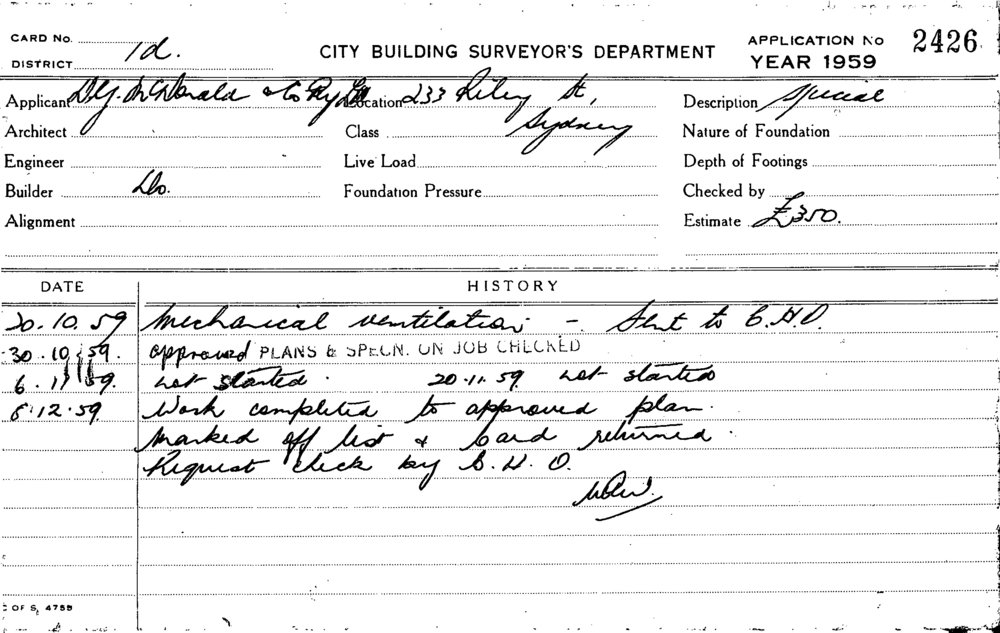 CARD No.
DISTRICT 1d.
CITY BUILDING SURVEYOR'S DEPARTMENT
APPLICATION No 2426
YEAR 1959
Applicant McDonald & Co Pty Ltd Location 233 Riley St,
Sydney
Description Special
Architect
Class
Nature of Foundation
Engineer
Live Load
Depth of Footings
Builder Do.
Foundation Pressure
Checked by
Alignment
Estimate £350.
DATE HISTORY
20.10.59 Mechanical ventilation - Sent to C.H.O.
30.10.59. approved PLANS & SPECN. ON JOB CHECKED
6.11.59. not started. 20.11.59 not started
8.12.59 Work completed to approved plan.
Marked off list & Card returned.
Request check by C.H.O.
OF S, 4759